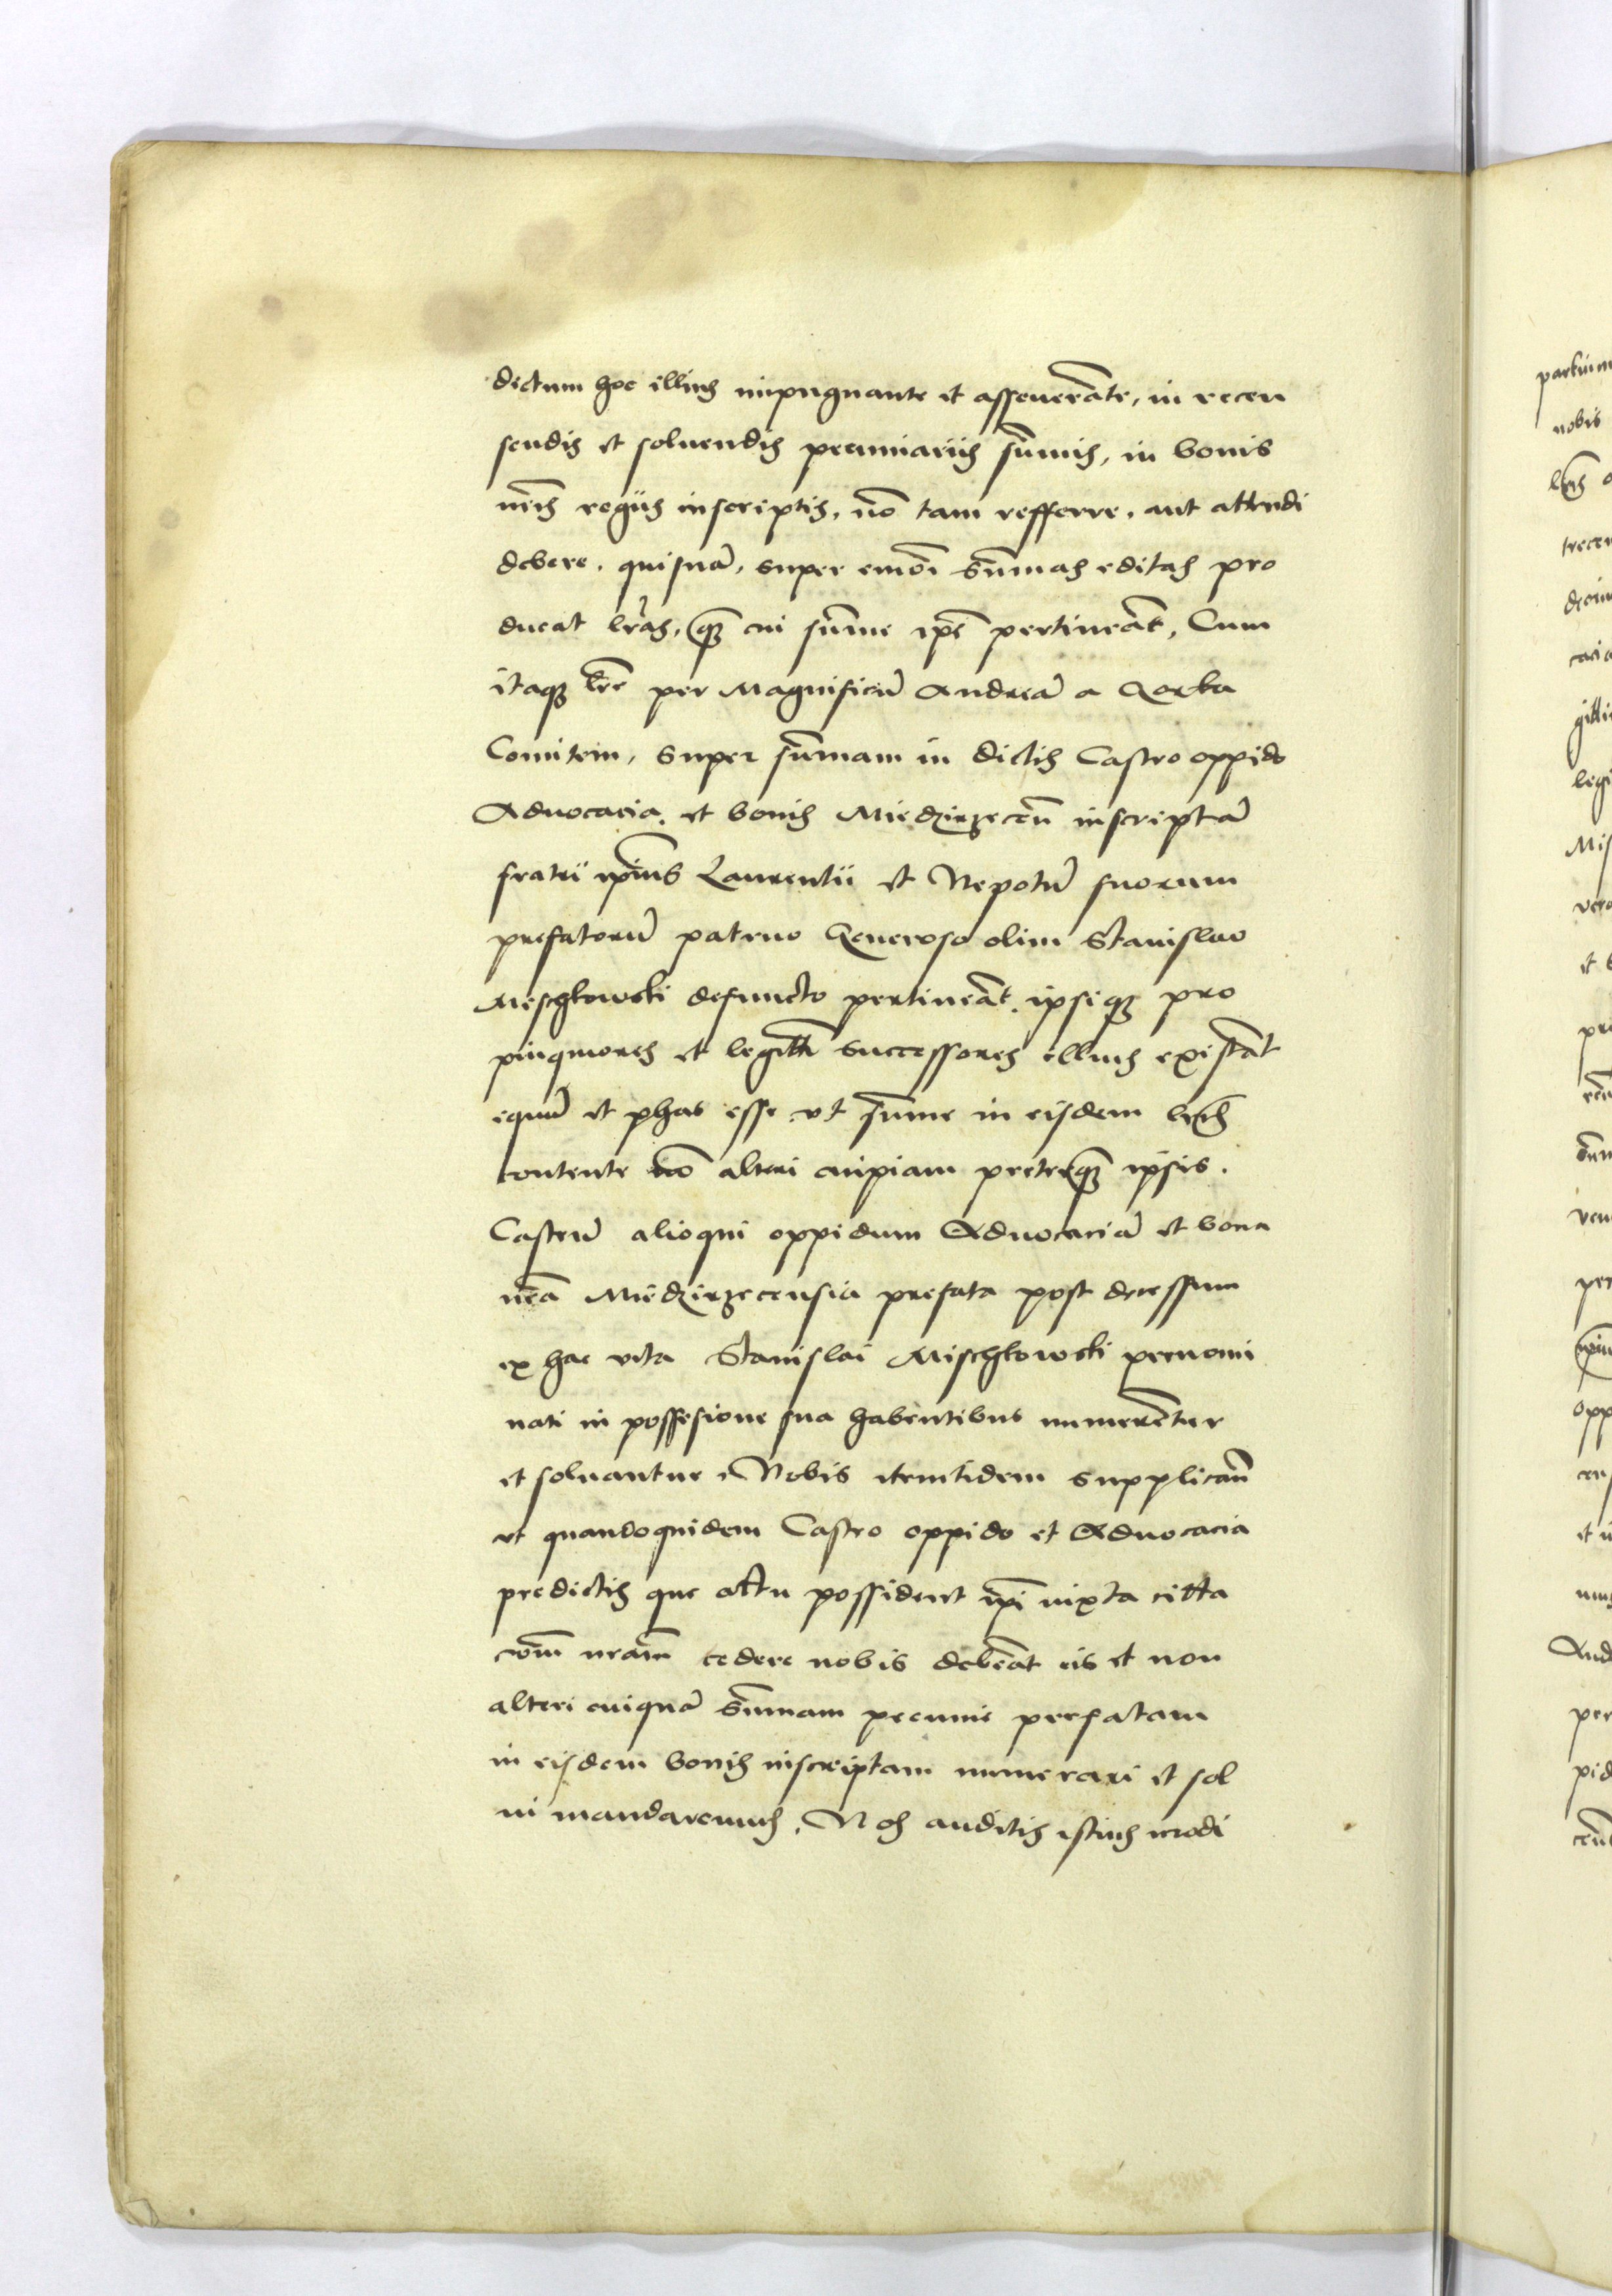 dictum hoc illius impugnante et asseuerāte, in recen
sendis et soluendis pecuniariis sūmis, in bonis
nr̄is regiis inscriptis, nō tam refferre, aut attendi
debere, quisnā, super eiuōi sūmmas editas pro
ducat lr̄as, q̄ꝫ cui sūme ip̄e pertineāt, Cum
itaqꝫ lr̄e per Magnificū Andreā a Gorka
Comitem, super sūmam in dictis Castro oppido
Aduocacia, et bonis Miedzirzecen̄ inscriptā
fratri ip̄ius Laurentii et Nepotū suorum
prefatorū patruo Generoso olim Stanislao
Mischkowski defuncto pertineāt, ipsiqꝫ pro
pinquiores et legitt̄i successores illius existāt
equū et phas esse vt sūme in eisdem lr̄is
contente nō alteri cuipiam preterq̄ꝫ ipsis.
Castrū alioqui oppidum Aduocaciā et bona
nr̄a Miedzirzecensia prefata post decessum
ex hac vita Stanislai Mischkowski prenomi
nati in possesione sua habentibus numerētur
et soluantur, Nobis itentidem supplican̄
vt quandoquidem Castro oppido et Aduocacia
predictis que actu possident ip̄i iuxta citta
cōm̄ nr̄am̄ cedere nobis debeāt eis et non
alteri cuiquā sūmmam pecunie prefatam
in eisdem bonis inscriptam numerari et sol
ui mandaremus, Nos auditis istius modi